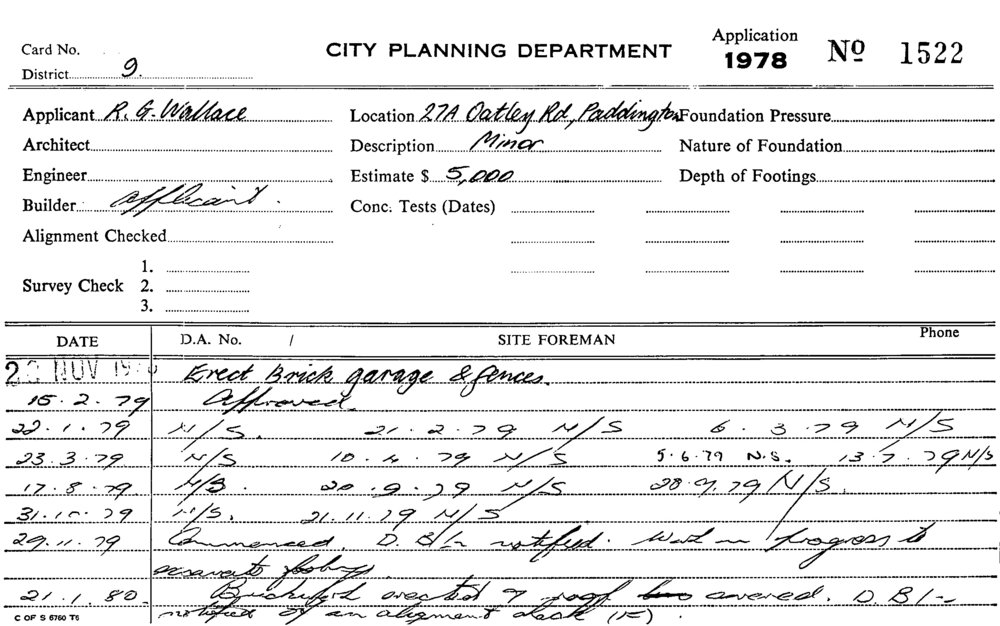 Card No.
CITY PLANNING DEPARTMENT
Application
1978
No 1522
District 9.
Applicant R. G. Wallace
Location 27A Oatley Rd, Paddington
Foundation Pressure
Architect
Description Minor
Nature of Foundation
Engineer
Estimate $ 5,000
Depth of Footings
Builder applicant.
Conc. Tests (Dates)
Alignment Checked
1.
Survey Check 2.
3.
DATE D.A. No. / SITE FOREMAN Phone
NOV Erect Brick garage & fences.
15.2.79 Approved.
22.1.79 N/S. 21.2.79 N/S 6.3.79 N/S
23.3.79 N/S 10.4.79 N/S 5.6.79 N.S. 13.7.79 N/S
17.8.79 N/S. 20.9.79 N/S 28.9.79 N/S.
31.10.79 N/S. 21.11.79 N/S
29.11.79 Commenced D.B/- notified. Work in progress to
excavate
21.1.80 Brickwork erected & roof covered. D.B/-
C OF S 6760 T6 notified of an alignment check